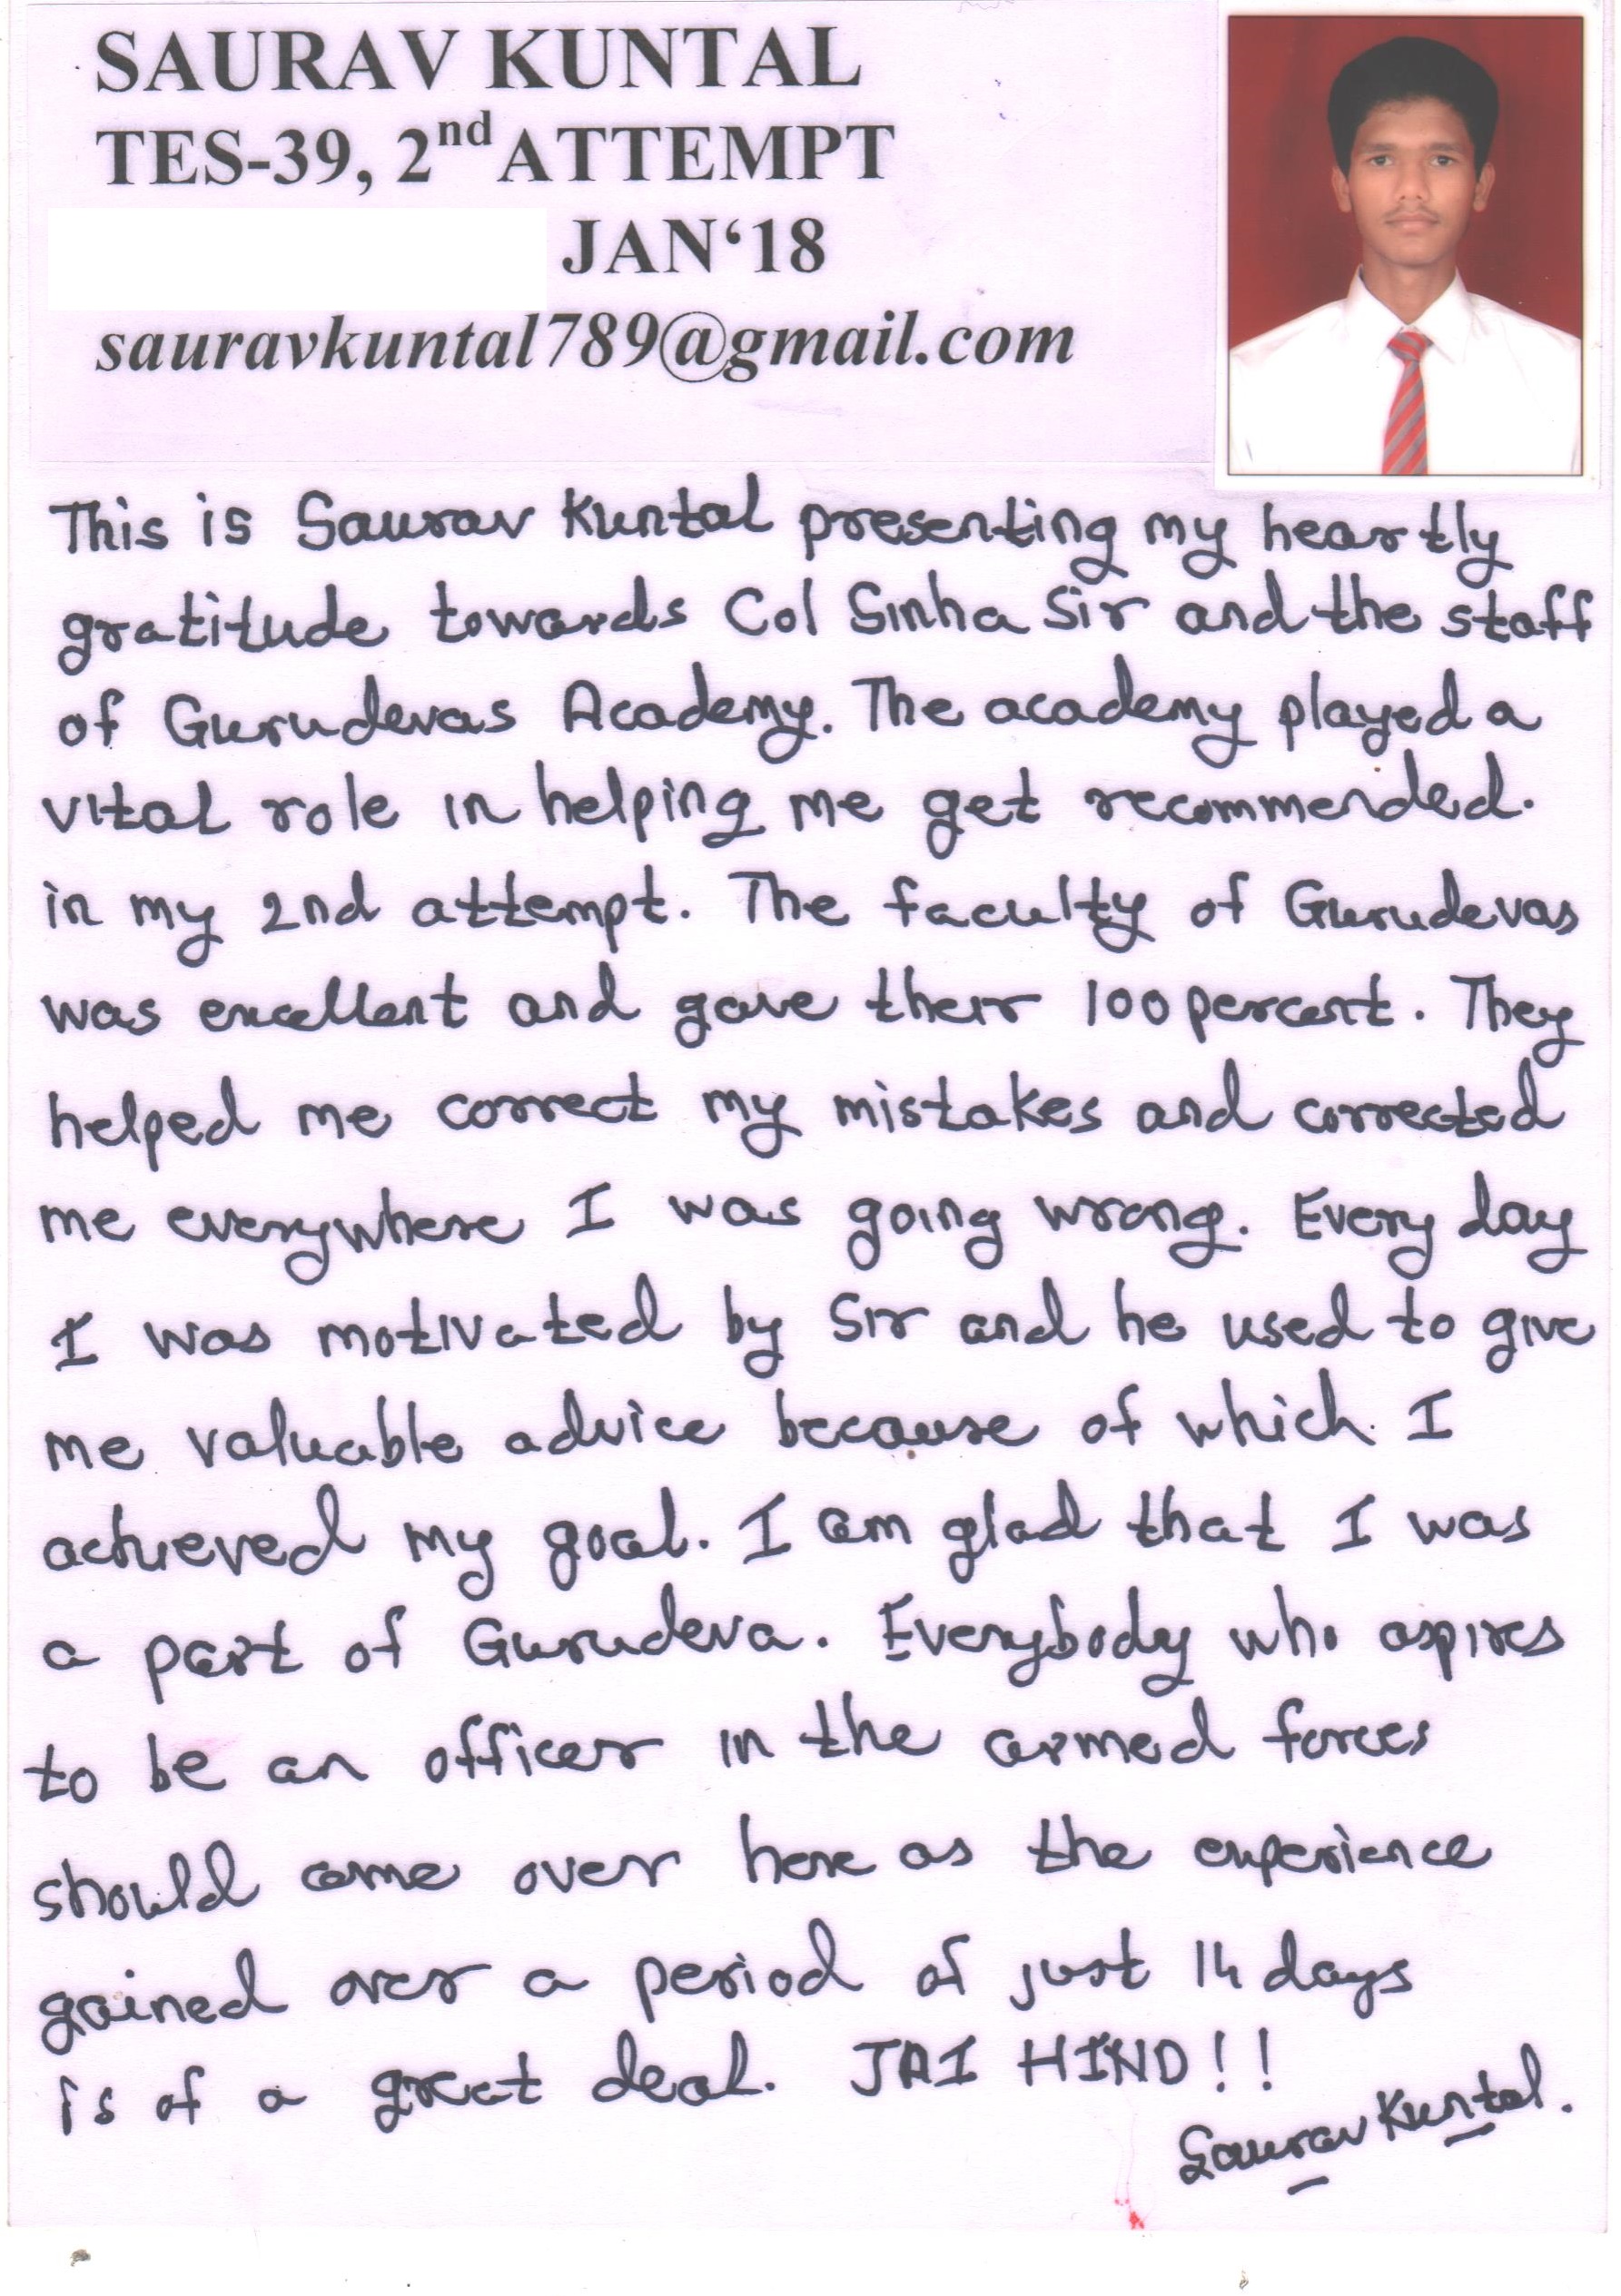 SAURAV KUNTAL
TES-39, 2nd ATTEMPT
JAN‘18
sauravkuntal789@gmail.com
This is Saurav Kuntal presenting my heartly
gratitude towards Col Sinha Sir and the staff
of Gurudevas Academy. The academy played a
vital role in helping me get recommended.
in my 2nd attempt. The faculty of Gurudevas
was excellent and gave their 100 percent. They
helped me correct my mistakes and corrected
me everywhere I was going wrong. Every day
I was motivated by Sir and he used to give
me valuable advice because of which I
achieved my goal. I am glad that I was
a part of Gurudeva. Everybody who aspires
to be an officer in the armed forces
should come over here as the experience
gained over a period of just 14 days
is of a great deal. JAI HIND!!
Saurav Kuntal.